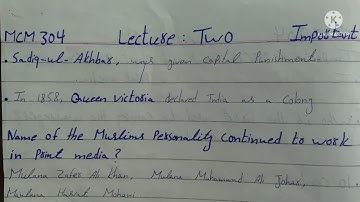 MCM 304 Lecture: Two Important
• Sadiq-ul-Akhbar, was given capital Punishment.
• In 1858, Queen victoria declared India as a Colony
Name of the Muslims Personality continued to work
in Print media?
Mulana Zafar Ali Khan, Mulana Muhammad Ali Johar,
Maulana Hasrat Mohani